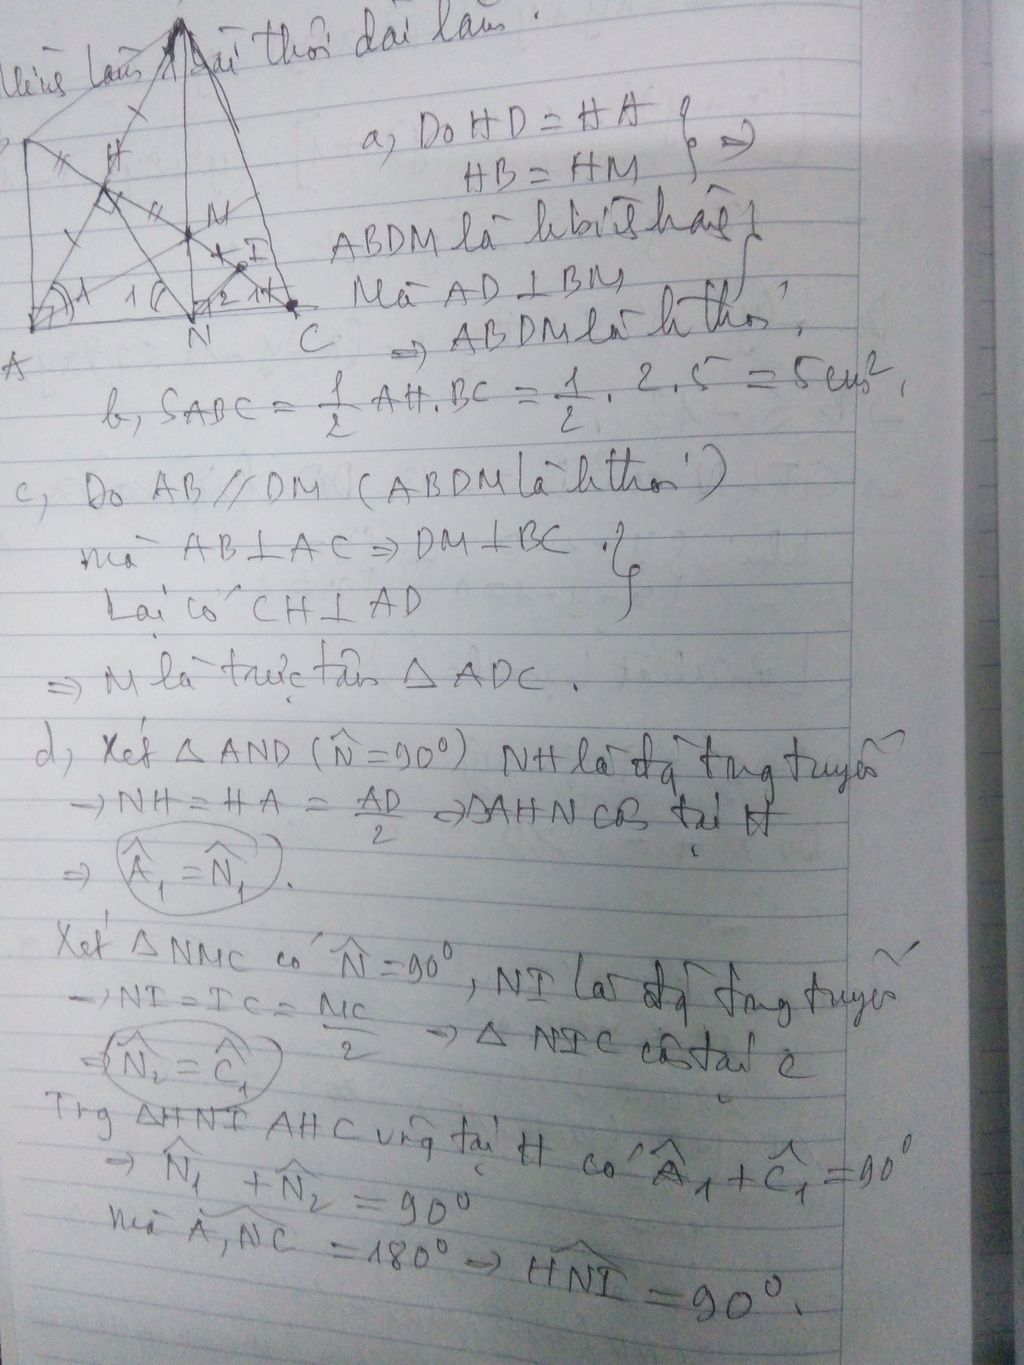 làm bài thôi dài lắm.
a, Do HD = HA
HB = HM } =>
ABDM là hbis hàng
Mà AD ⊥ BM
=> ABDM là h thoi.
H
M
I
1
1
2
1
A
N
C
b, SABC = 1/2 AH.BC = 1/2 . 2.5 = 5 cm²,
c, Do AB // DM (ABDM là h thoi)
mà AB ⊥ AC => DM ⊥ BC
Lại có CH ⊥ AD
=> M là trực tâm Δ ADC.
d, Xét Δ AND (N̂ = 90⁰) NH là đg trung tuyến
-> NH = HA = AD/2 => ΔAHN cân tại H
=> Â₁ = N̂₁.
Xét Δ NMC có N̂ = 90⁰, NI là đg trung tuyến
-> NI = IC = MC/2 -> Δ NIC cân tại C
=> N̂₂ = Ĉ₁
Trg ΔHNI AHC vuông tại H có Â₁ + Ĉ₁ = 90⁰
-> N̂₁ + N̂₂ = 90⁰
mà A,NC = 180⁰ -> HNI = 90⁰.